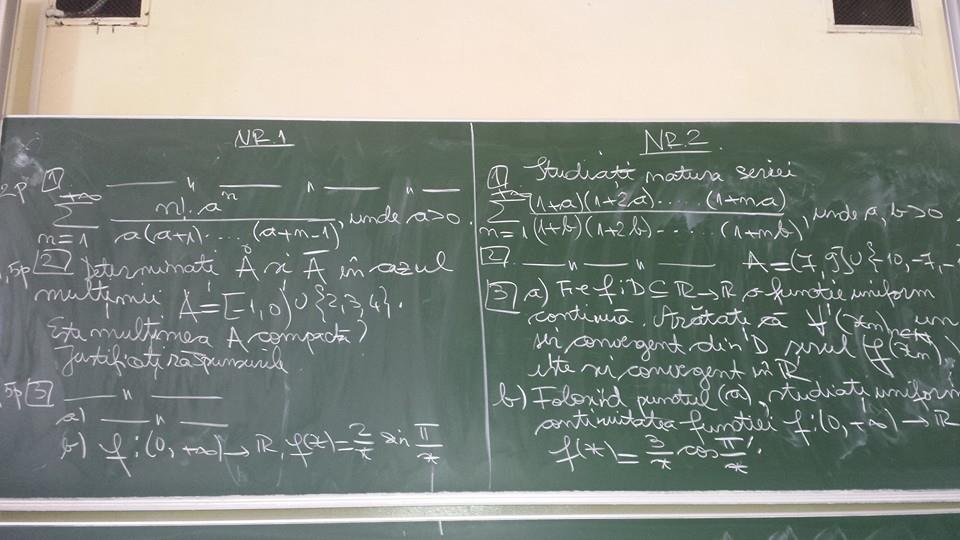 NR.1
2p 1 —— " —— " —— " ——
+∞ ∑ n=1 n!·aⁿ / a(a+1)·....·(a+n-1), unde a>0.
,5p 2 Determinați Å și Ā în cazul
mulțimii A=[-1,0)∪{2,3,4}.
Este mulțimea A compactă?
Justificați răspunsurile.
,5p 3 —— " ——
a) —— " ——
b) f:(0,+∞)→ℝ, f(x)=2/x sin π/x
NR.2
1 Studiați natura seriei
+∞ ∑ n=1 (1+a)(1+2a)·....·(1+na) / (1+b)(1+2b)·....·(1+nb), unde a,b>0
2 —— " —— " —— A=(7,9]∪{10,-7,-
3 a) Fie f:D⊆ℝ→ℝ o funcție uniform
continuă. Arătați că ∀(xn) un
șir convergent din D șirul f(xn)
este șir convergent în ℝ
b) Folosind punctul (a), studiați uniform
continuitatea funcției f:(0,+∞)→ℝ
f(x)=3/x cos π/x.